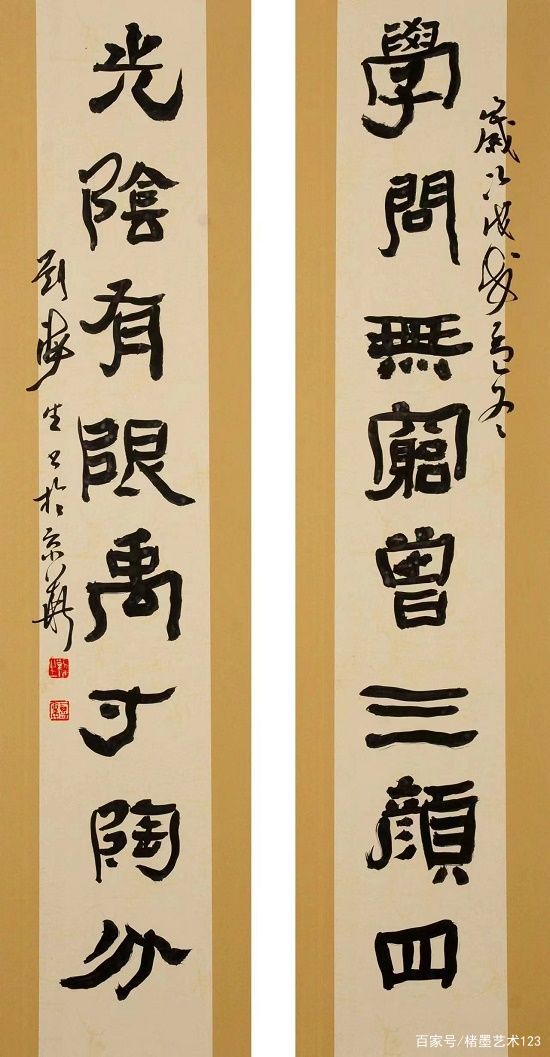 學問無窮曾三顏四
歲次
光陰有限禹寸陶分
海生书於京華
百家号/楮墨艺术123